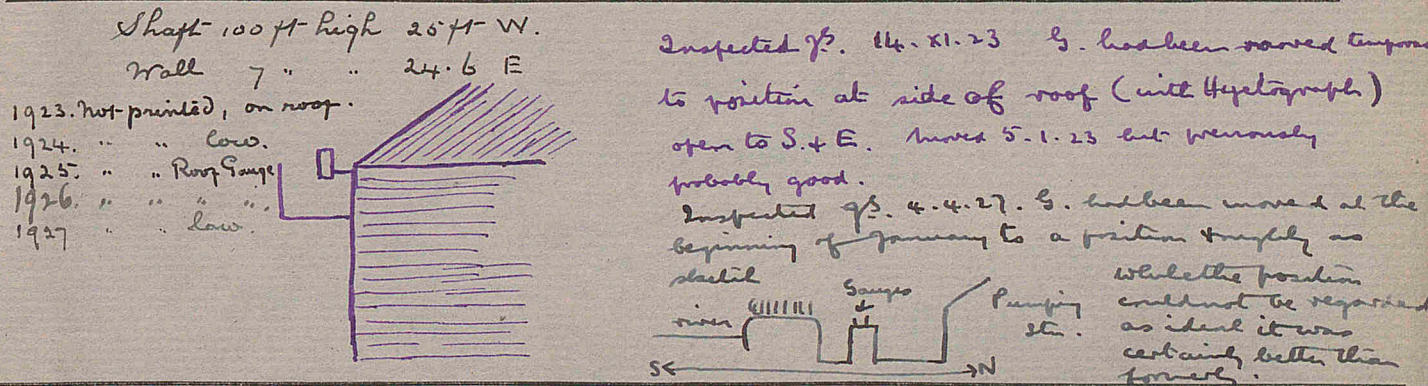 Shaft 100 ft high 25 ft W.
Wall 7 " " 24.6 E
1923. Not printed, on roof.
1924. " " low.
1925. " " Roof Gauge
1926. " " " ".
1927 " " low.
Inspected 14.XI.23 G. had been moved tempora
to position at side of roof (with Hyetograph)
open to S. & E. Moved 5.1.23 but previously
probably good.
Inspected 4.4.27. G. had been moved at the
beginning of January to a position roughly as
sketch
river
Gauges
Pumping
Stn.
S N
while the position
could not be regarded
as ideal it was
certainly better than
formerly.